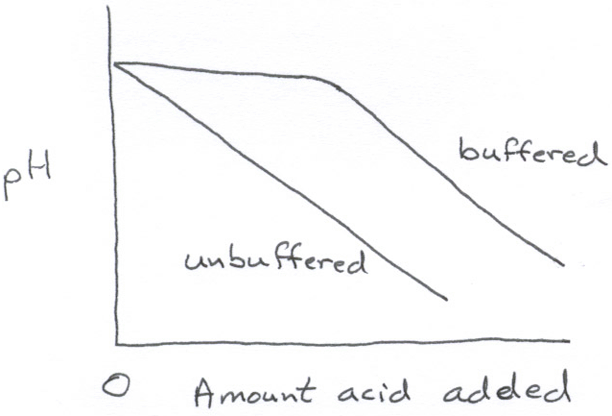 buffered
pH
unbuffered
0 Amount acid added